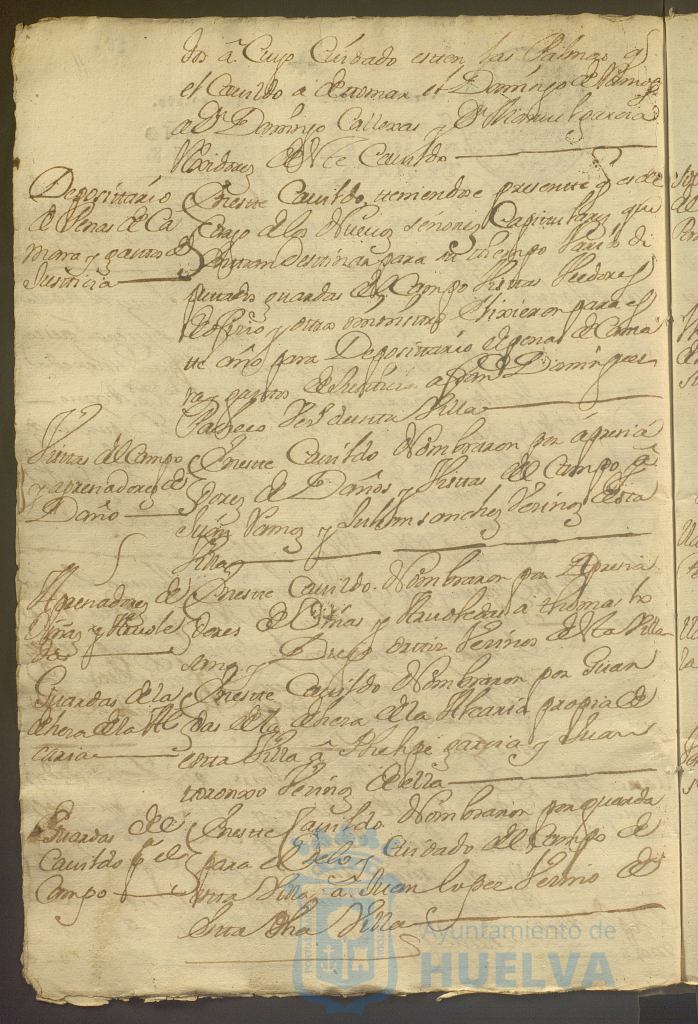 dos a Cuyo Cuidado esten las Palmas q
el Cavildo a de tomar el Domingo de Ramos
a Dn Domingo Callexas y Dn Manuel garcia
Rexidores de este Cavildo
Depositario
de Penas de Ca
mara y gastos de
Justicia
En este Cavildo teniendose presente q es de
cargo de los Nuevos señores Capitulares que
entran destinar para su tiempo
putados guardas del Campo Vistas Veedores
y otros ministros Elixieron para el
te año para Depositario de penas de Cama
ra y gastos de Justicia a Juan Dominguez
Pacheco Vezo de esta Villa
Vistas del Campo
y apreciadores de
Daño
En este Cavildo Nombraron por aprecia
dores de Daños y Vistas del Campo a
Juan Ramos y Julian sanchez Vezinos de esta
Villa
Apreciadores de
Viñas y Arvole
das
En este Cavildo Nombraron por Aprecia
dores de Viñas y Arvoledas a thomas
y Diego ortiz Vezinos de esta Villa
Guardas de la
dehesa de la Al
caria
En este Cavildo Nombraron por Guar
das de la dehesa de la Alcaria propia de
esta Villa a Phelipe garcia y Juan
coronxo Vezinos de ella
Guardas de
Cavildo pa el
Campo
En este Cavildo Nombraron por guarda
para el Zelo y Cuidado del Campo de
esta Villa a Juan lopez Vezino de
esta dha Villa
Ayuntamiento de
HUELVA